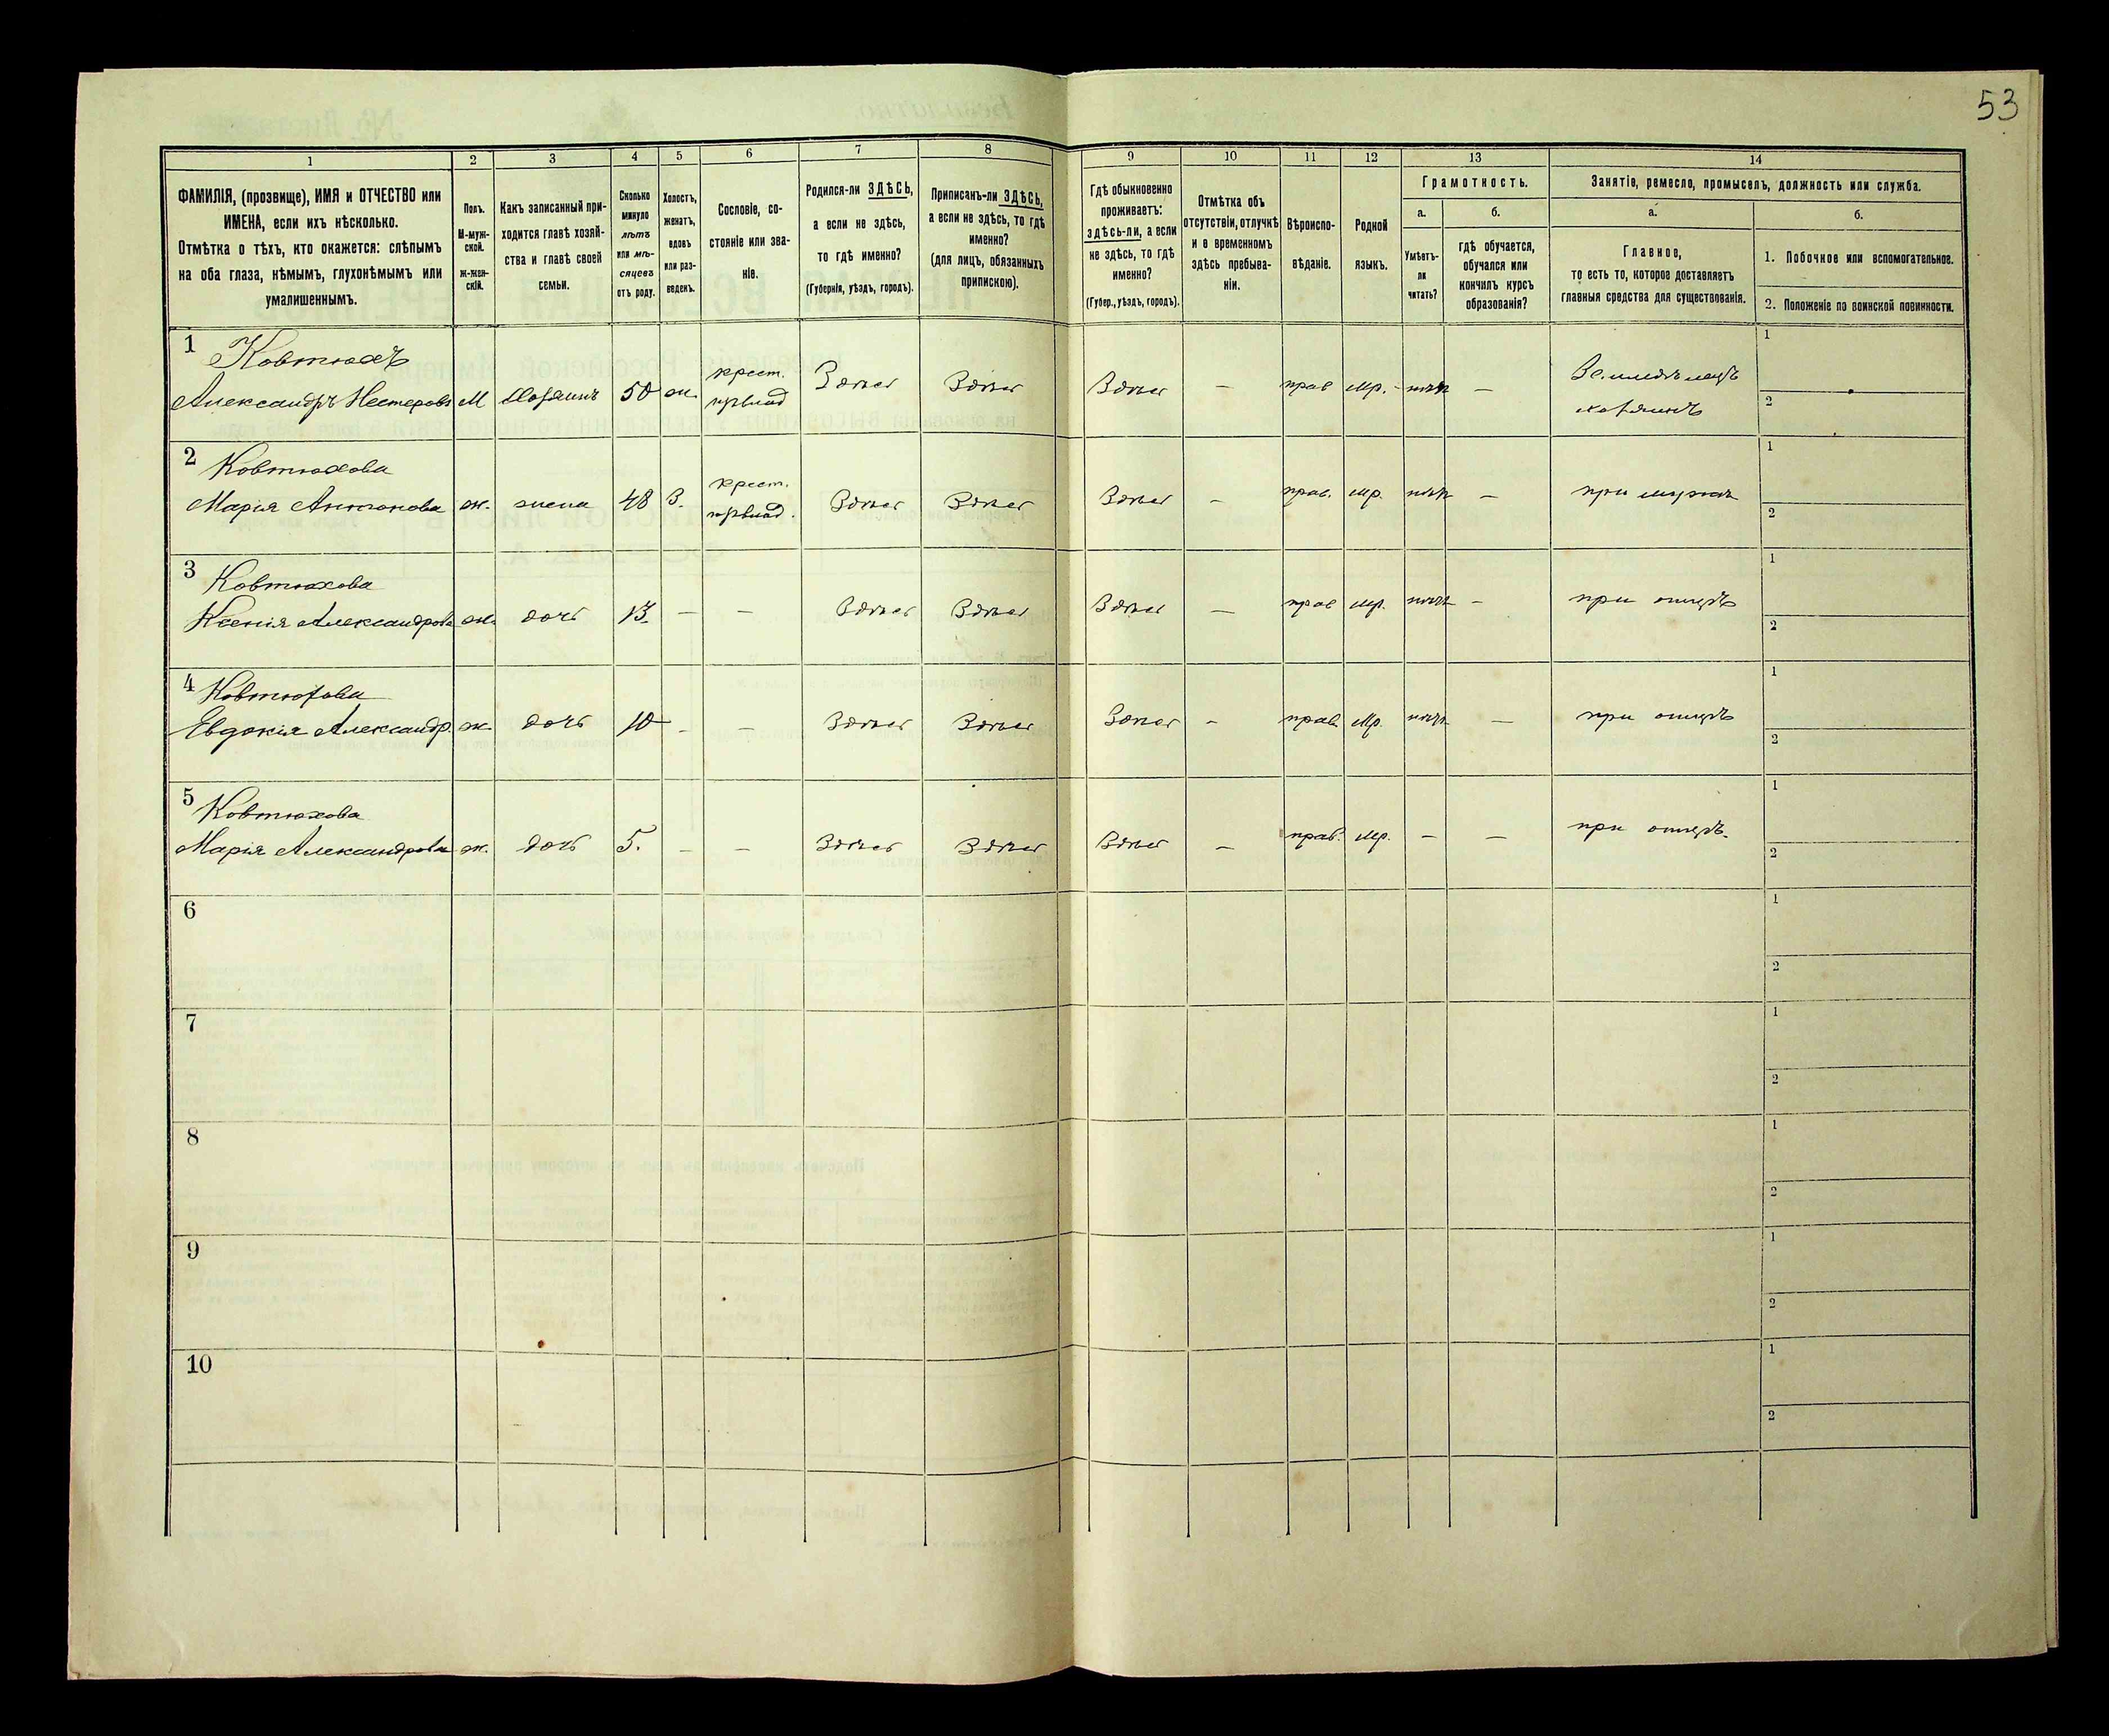 53
1 2 3 4 5 6 7 8 9 10 11 12 13 14
ФАМИЛІЯ, (прозвище), ИМЯ и ОТЧЕСТВО или
ИМЕНА, если ихъ нѣсколько.
Отмѣтка о тѣхъ, кто окажется: слѣпымъ
на оба глаза, нѣмымъ, глухонѣмымъ или
умалишеннымъ.
Полъ.
М-муж-
ской.
ж-жен-
скій.
Какъ записанный при-
ходится главѣ хозяй-
ства и главѣ своей
семьи.
Сколько
минуло
лѣтъ
или мѣ-
сяцевъ
отъ роду.
Холостъ,
женатъ,
вдовъ
или раз-
веденъ.
Сословіе, со-
стояніе или зва-
ніе.
Родился-ли ЗДѢСЬ,
а если не здѣсь,
то гдѣ именно?
(Губернія, уѣздъ, городъ).
Приписанъ-ли ЗДѢСЬ,
а если не здѣсь, то гдѣ
именно?
(для лицъ, обязанныхъ
припискою).
Гдѣ обыкновенно
проживаетъ:
здѣсь-ли, а если
не здѣсь, то гдѣ
именно?
(Губер., уѣздъ, городъ).
Отмѣтка объ
отсутствіи, отлучкѣ
и о временномъ
здѣсь пребыва-
ніи.
Вѣроиспо-
вѣданіе.
Родной
языкъ.
Грамотность.
а.
Умѣетъ-
ли
читать?
б.
гдѣ обучается,
обучался или
кончилъ курсъ
образованія?
Занятіе, ремесло, промыселъ, должность или служба.
а.
Главное,
то есть то, которое доставляетъ
главныя средства для существованія.
б.
1. Побочное или вспомогательное.
2. Положеніе по воинской повинности.
1 Ковтюхъ крест. Земледѣлецъ 1
Александръ Нестеровъ М Хозяинъ 50 ж. Здѣсь Здѣсь Здѣсь — прав мр. нѣтъ — хозяинъ 2
2 Ковтюхова крест. 1
Марія Антонова ж. жена 48 З. Здѣсь Здѣсь Здѣсь — прав. мр. нѣтъ — при мужѣ 2
3 Ковтюхова 1
Ксенія Александрова ж. дочь 13. — — Здѣсь Здѣсь Здѣсь — прав мр. нѣтъ — при отцѣ 2
4 Ковтюхова 1
Евдокія Александр. ж. дочь 10 - — Здѣсь Здѣсь Здѣсь - прав. мр. нѣтъ — при отцѣ 2
5 Ковтюхова 1
Марія Александрова ж. дочь 5. — — Здѣсь Здѣсь Здѣсь — прав. мр. — — при отцѣ. 2
6 1
2
7 1
2
8 1
2
9 1
2
10 1
2